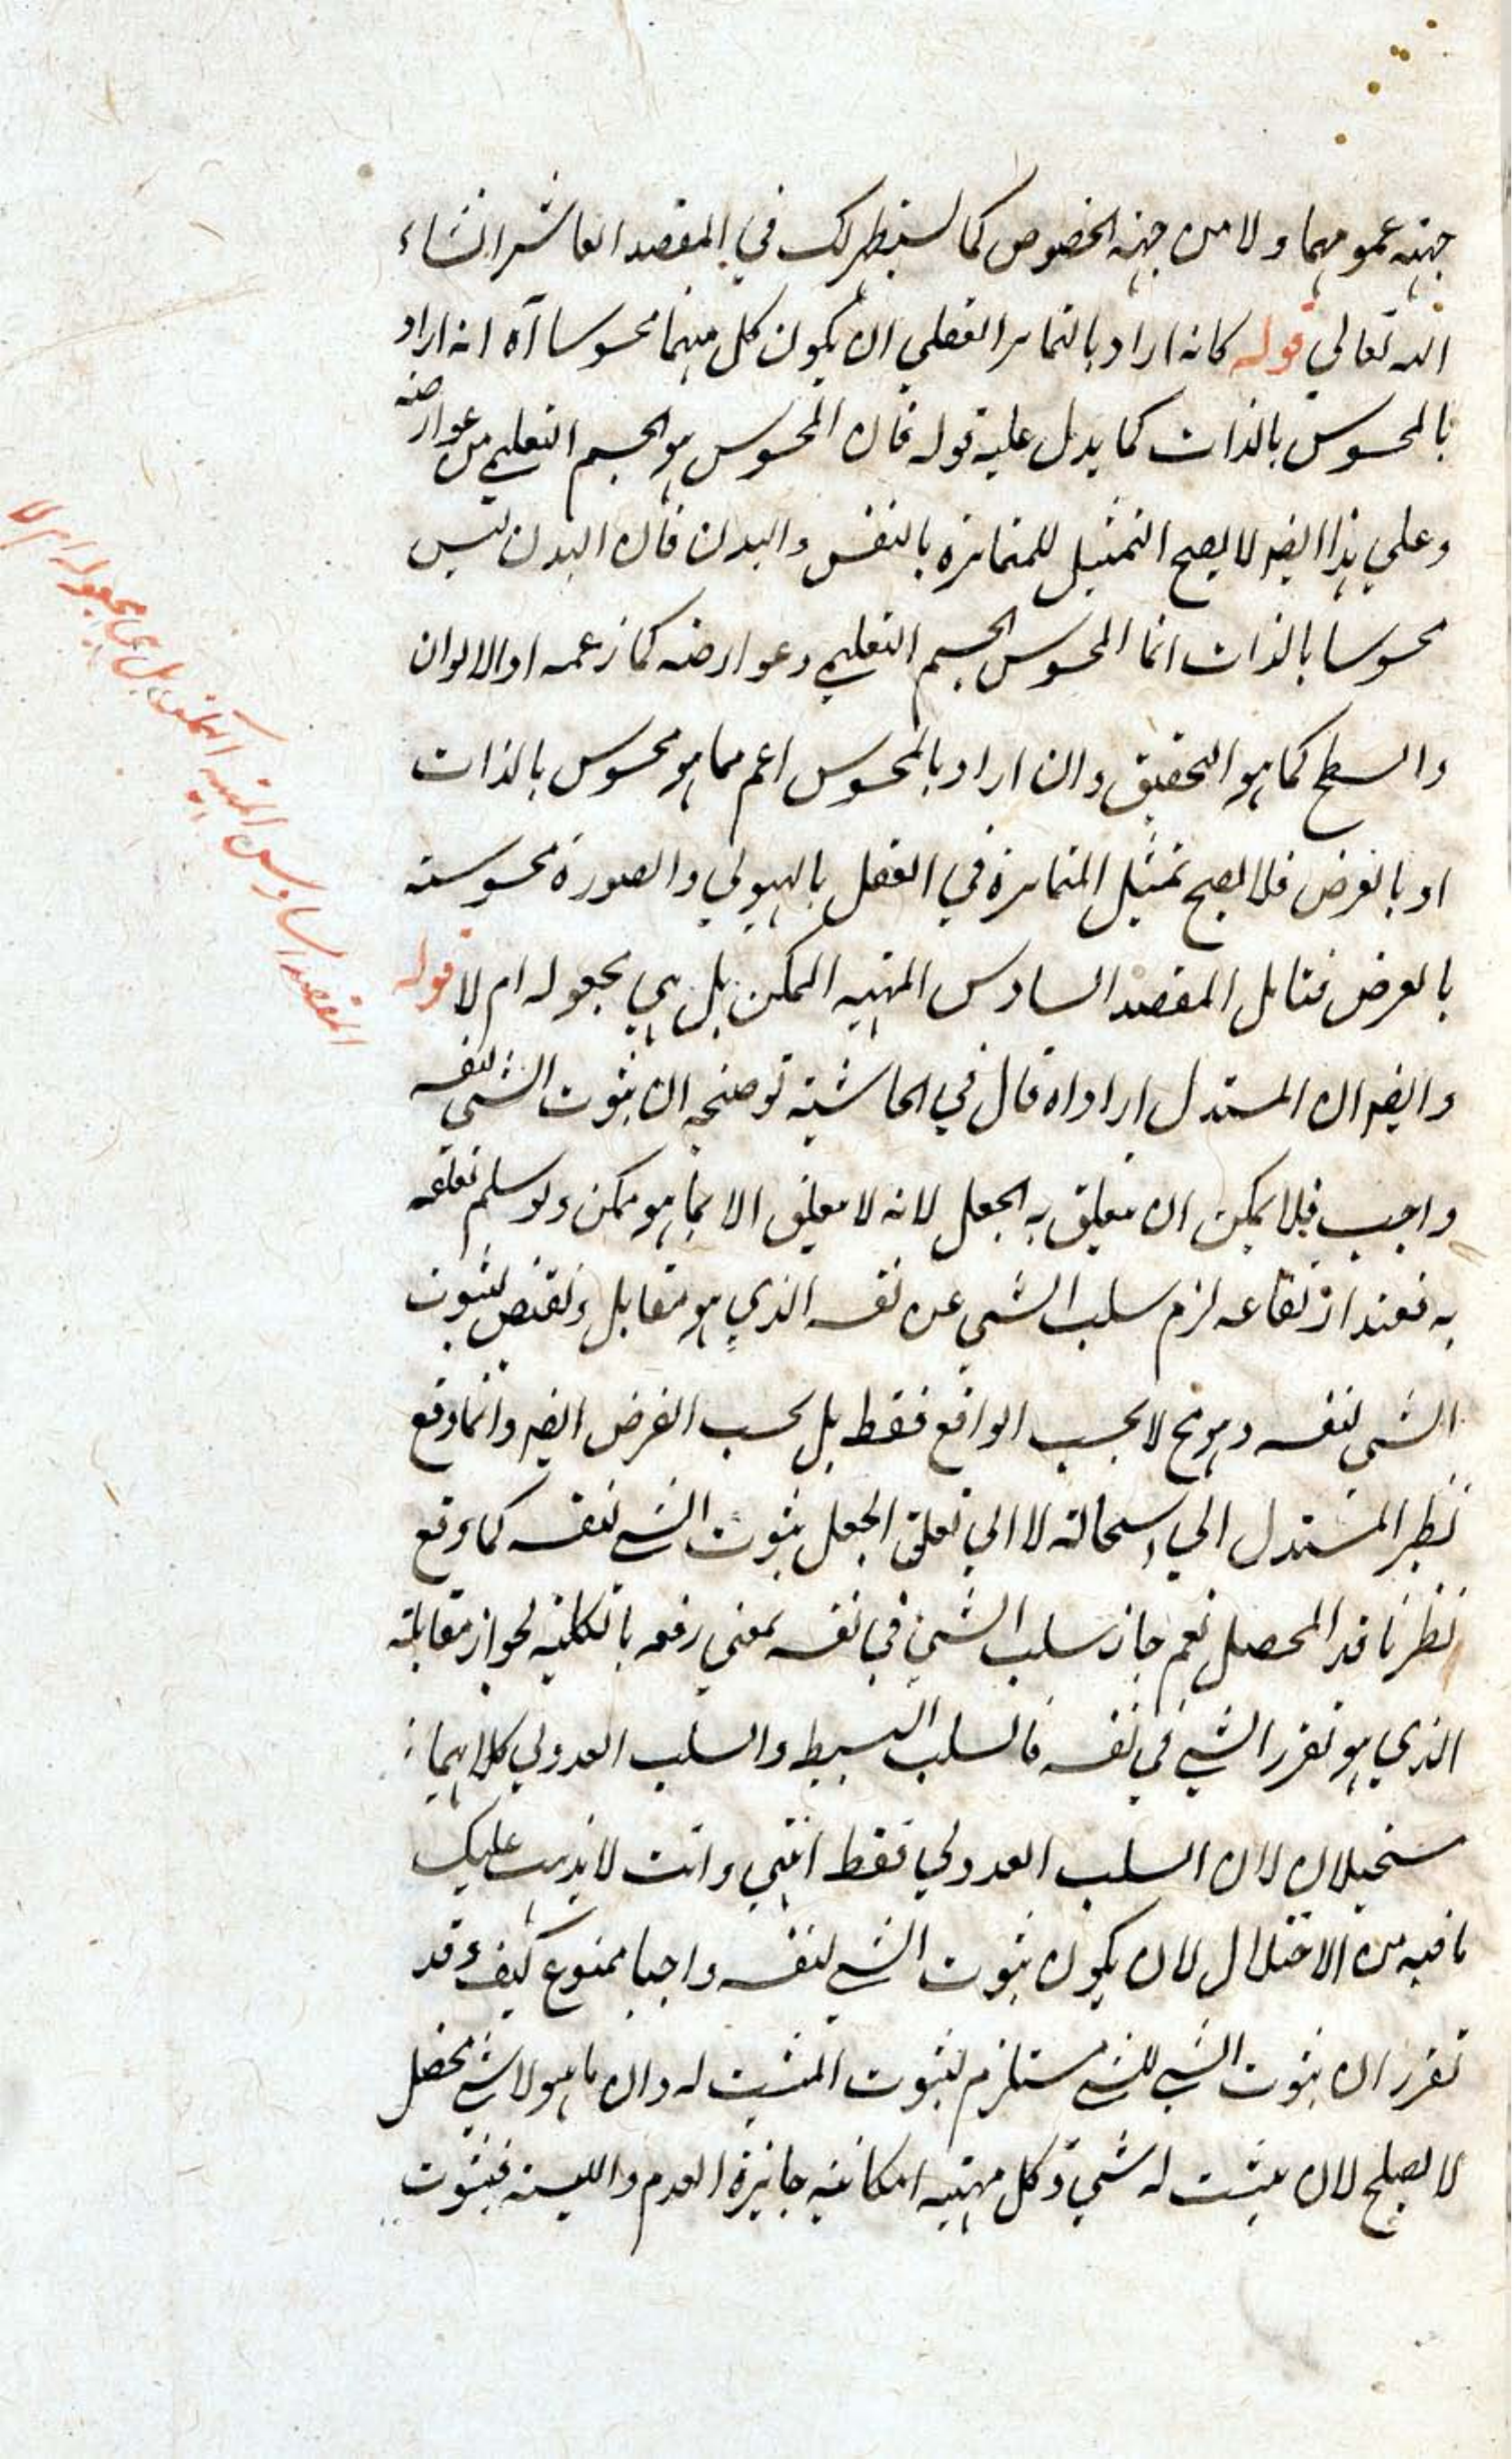 جهته عمومهما ولا من جهة الخصوص كما سيظهر لك في المقصد العاشر انشاء
الله تعالى قوله كانه اراد بالتمايز العقلي ان يكون كل منهما محسوسا آه انه اراد
بالمحسوس بالذات كما يدل عليه قوله فان المحسوس هو الجسم التعليمي من عوارضه
وعلي هذا ايضا لا يصح التمثيل للمتمايزة بالنفس والبدن فان البدن ليس
محسوسا بالذات انما المحسوس الجسم التعليمي وعوارضه كما زعمه او الالوان
والسطح كما هو التحقيق وان اراد بالمحسوس اعم مما هو محسوس بالذات
او بالعرض فلا يصح تمثيل المتمايزة في العقل بالهيولي والصورة محسوسته
بالعرض فتامل المقصد السادس المهية الممكن بل هي مجعوله ام لا قوله
وايضه ان المستدل اراد اه قال في الحاشية توضيحه ان ثبوت الشي لنفسه
واجب فلا يمكن ان يتعلق به الجعل لانه لا يتعلق الا بما هو ممكن ولو سلم تعلقه
به فعند ارتفاعه لزم سلب الشي عن نفسه الذي هو مقابل ونقيض لثبوت
الشي لنفسه وهو مح لا بحسب الواقع فقط بل بحسب الفرض ايضه وانما وقع
نظر المستدل الي استحالته لا الي تعلق الجعل بثبوت الشي لنفسه كما وقع
نظر ناقد المحصل نعم جاز سلب الشي في نفسه بمعني رفعه بالكلية لجواز مقابلة
الذي هو تقرر الشي في نفسه فالسلب البسيط والسلب العدولي كلاهما
مستحيلان لا ان السلب العدولي فقط انتهي وانت لا يذهب عليك
ما فيه من الاختلال لان يكون ثبوت الشي لنفسه واجبا ممنوع كيف وقد
تقرر ان ثبوت الشي للشي مستلزم لثبوت المثبت له وان ما هو لا شي محض
لا يصلح لان يثبت له شي وكل مهية امكانية جايزة العدم والليسية فثبوت
المقصد السادس المهية الممكن بل هي مجعوله ام لا